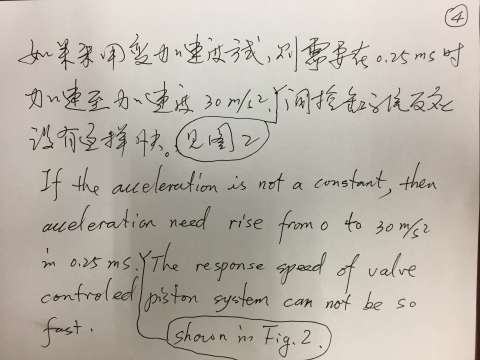 ④
如果采用变加速度方式,则需要在0.25ms时
加速至加速度30m/s2.阀控缸系统反应
没有这样快。见图2
If the acceleration is not a constant, then
acceleration need rise from 0 to 30 m/s2
in 0.25 ms. The response speed of valve
controled piston system can not be so
fast. shown in Fig.2.